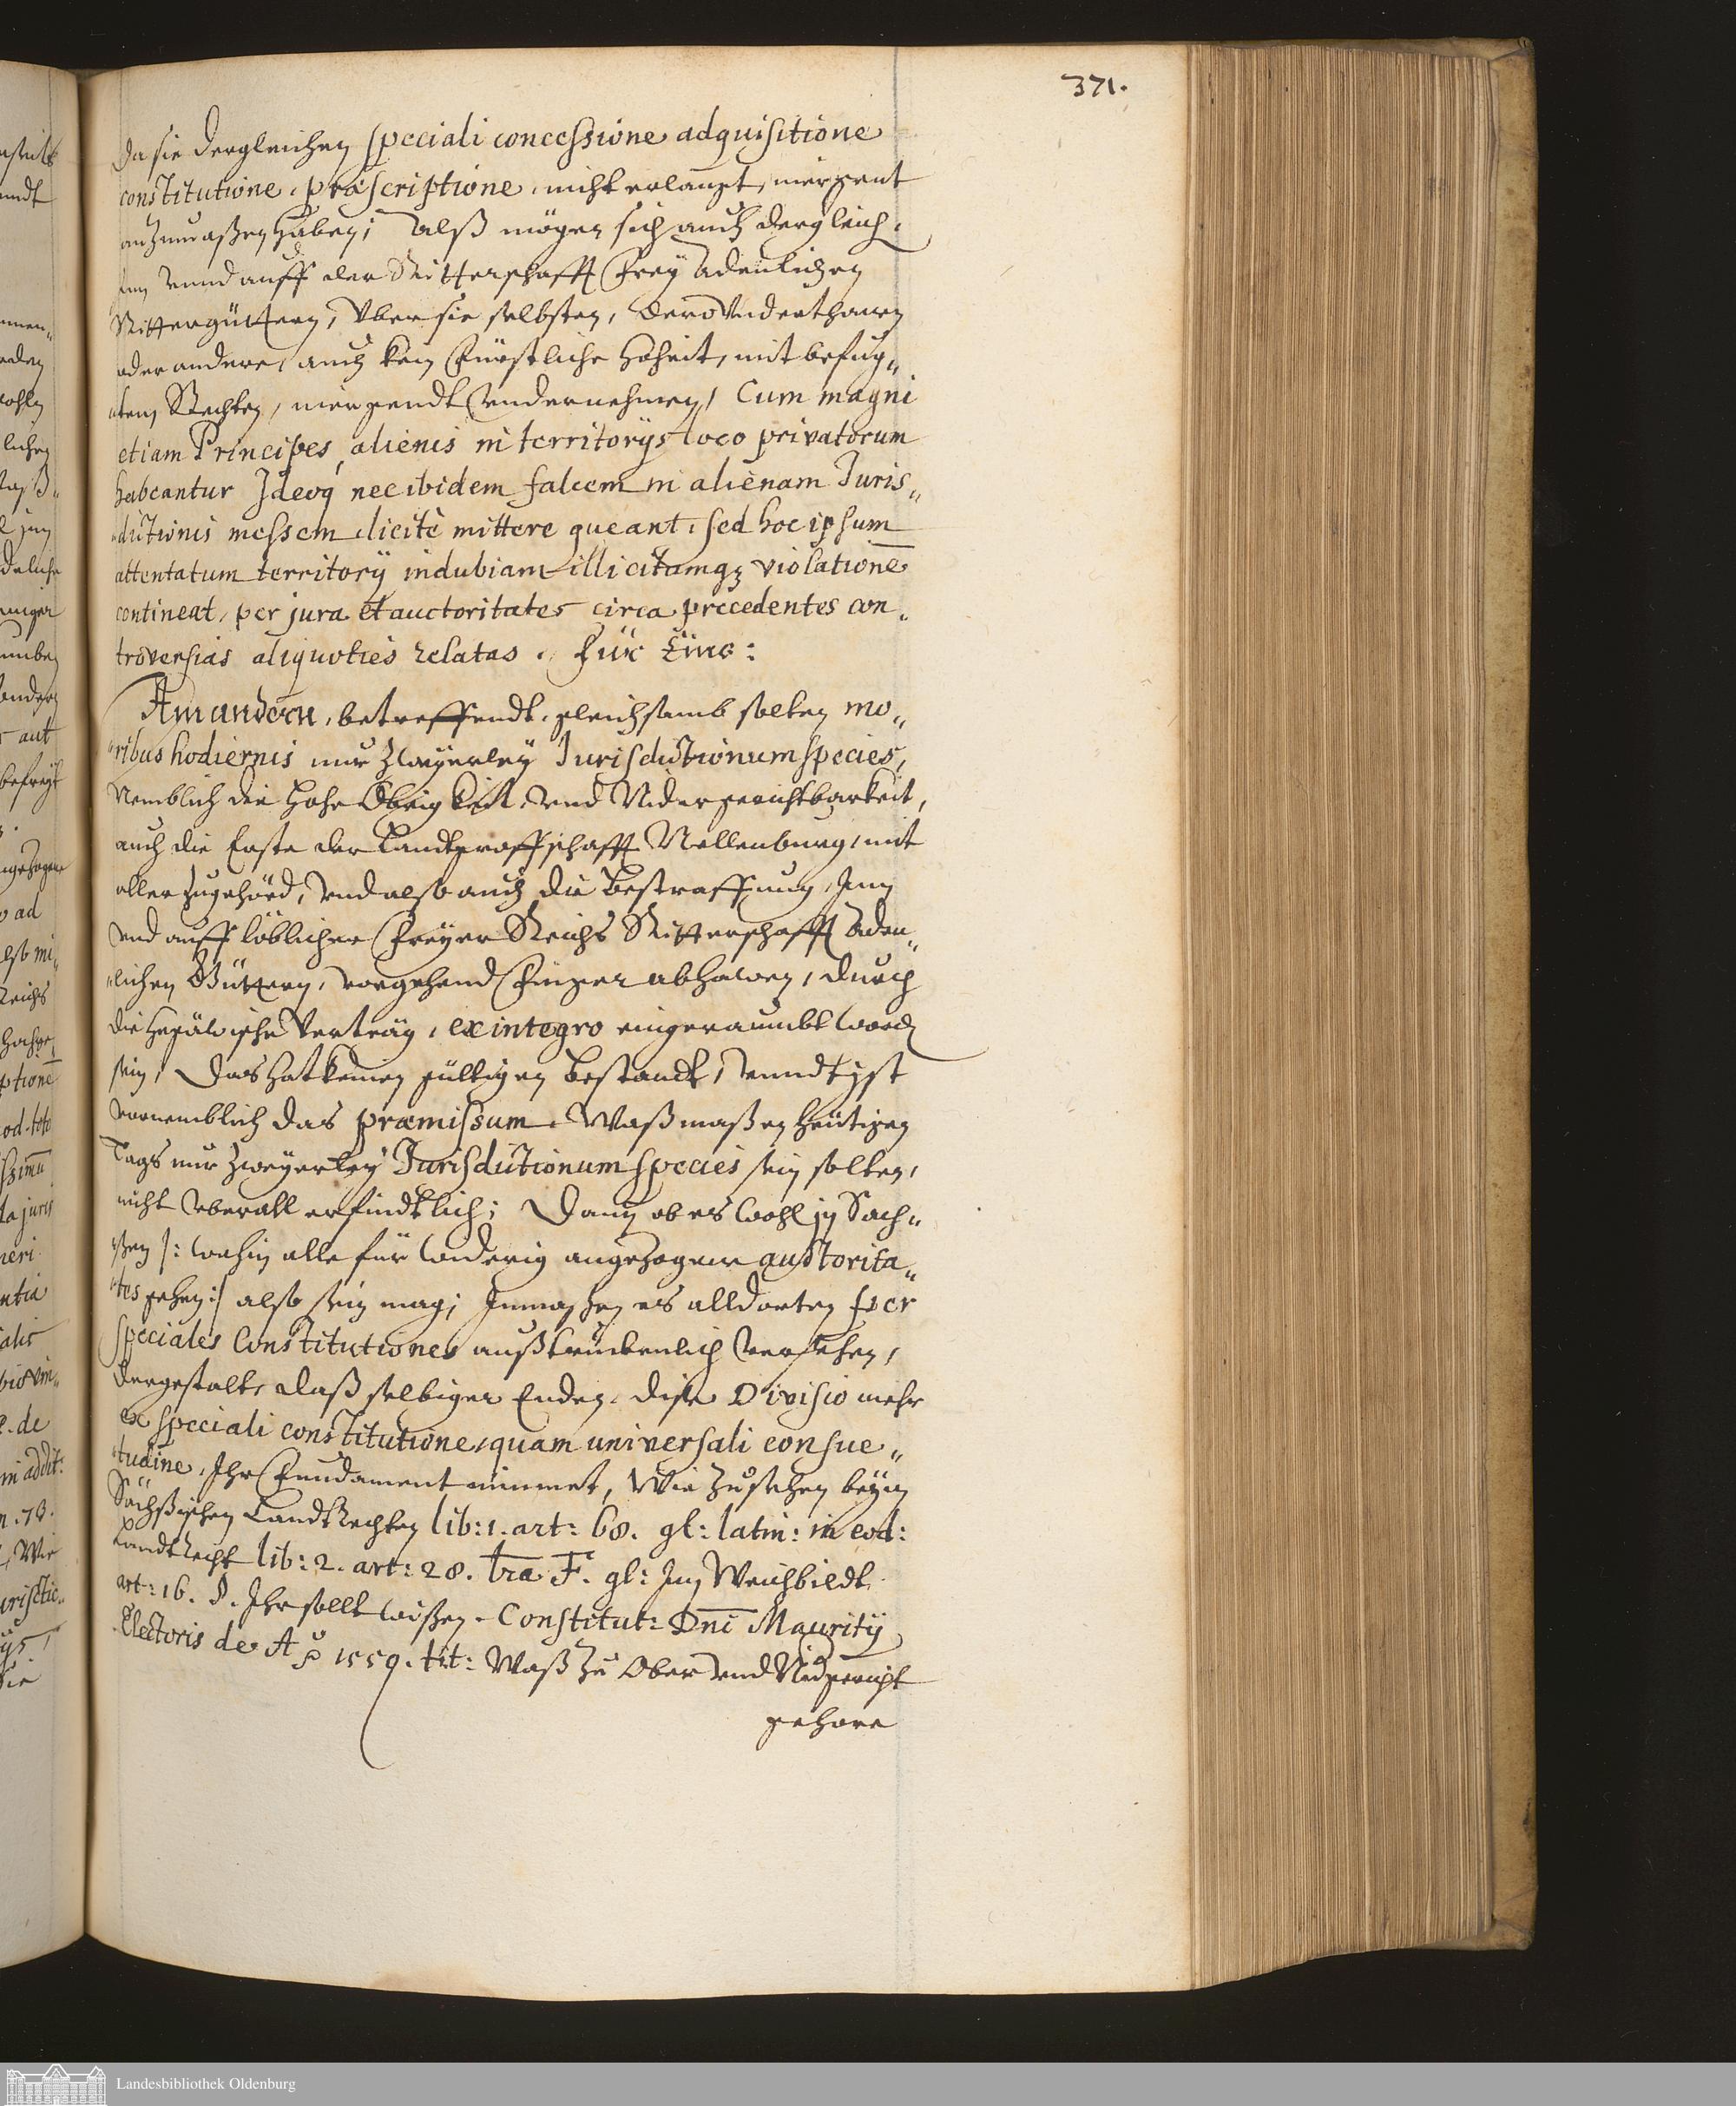 371.
da sie dergleichen speciali concessione adquisitione
constitutione, præscriptione, nicht erlangt, niergent
anzumaßen haben; Alß mögen sich auch dergleich-
en vnnd auff der Ritterschafft Frey Adenlichen
Rittergüttern, Vber sie selbsten, dero Vnderthonen
oder andere, auch kein Fürstliche Hoheit, mit befueg„
„ten Rechten, niergendt vndernehmen, Cum magni
etiam Principes, alienis in territorijs loco privatorum
habeantur Ideoq nec ibidem falcem in alienam Juris„
„dictionis messem licitè mittere queant, sed hoc ipsum
attentatum territorij indubiam illicitamq violationē
contineat, per jura et auctoritates circa precedentes con-
troversias aliquoties relatas. Für Eins:
Am andern, betreffendt, gleichsamb solten mo„
„ribus hodiernis nur zweyerley Jurisdictionum species,
Nemblich die Hohe Obrigkeit, vnd Nidergerichtbarkeit,
auch die Erste der Landtgraffschafft Nellenburg, mit
aller Zugehörd, vnd also auch die Bestraffung, Inn
vnd auff löblicher Freyer Reichs Ritterschafft Aden„
„lichen Güttern, vorgehend Finger abhawen, durch
die Hegäwische Verträg, ex integro eingeraumbt word
sein, Das hat keinen gültigen Bestandt, vnndt ist
vornemblich das præmissum, Waßmaßen heütigen
Tags nur zweyerley Jurisdictionum species sein solten,
nicht vberall erfindtlich; Dann ob es wohl in Sach„
ßen /: wohin alle für widerig angezogene auctorita„
„tes gehen :/ also sein mag, Inmaßen es alldorten per
speciales Constitutiones außtruckenlich versehen,
dergestalt, daß selbiger Enden, dise Divisio mehr
ex speciali constitutione, quam universali consue„
„tudine, Ihr Fundament nimmet, Wie zusehen beym
Sächßischen Landtrechten lib: 1. art: 68. gl: latin: in eod:
Landtrecht lib: 2. art: 28. lra F. gl: Im Weichbildt
art: 16. §. Ihr sollt wißen. Constitut: Dnī Mauritij
Electoris de Aō 1550. tit: Waß zu Ober vnd Nidgericht
gehöre
Landesbibliothek Oldenburg